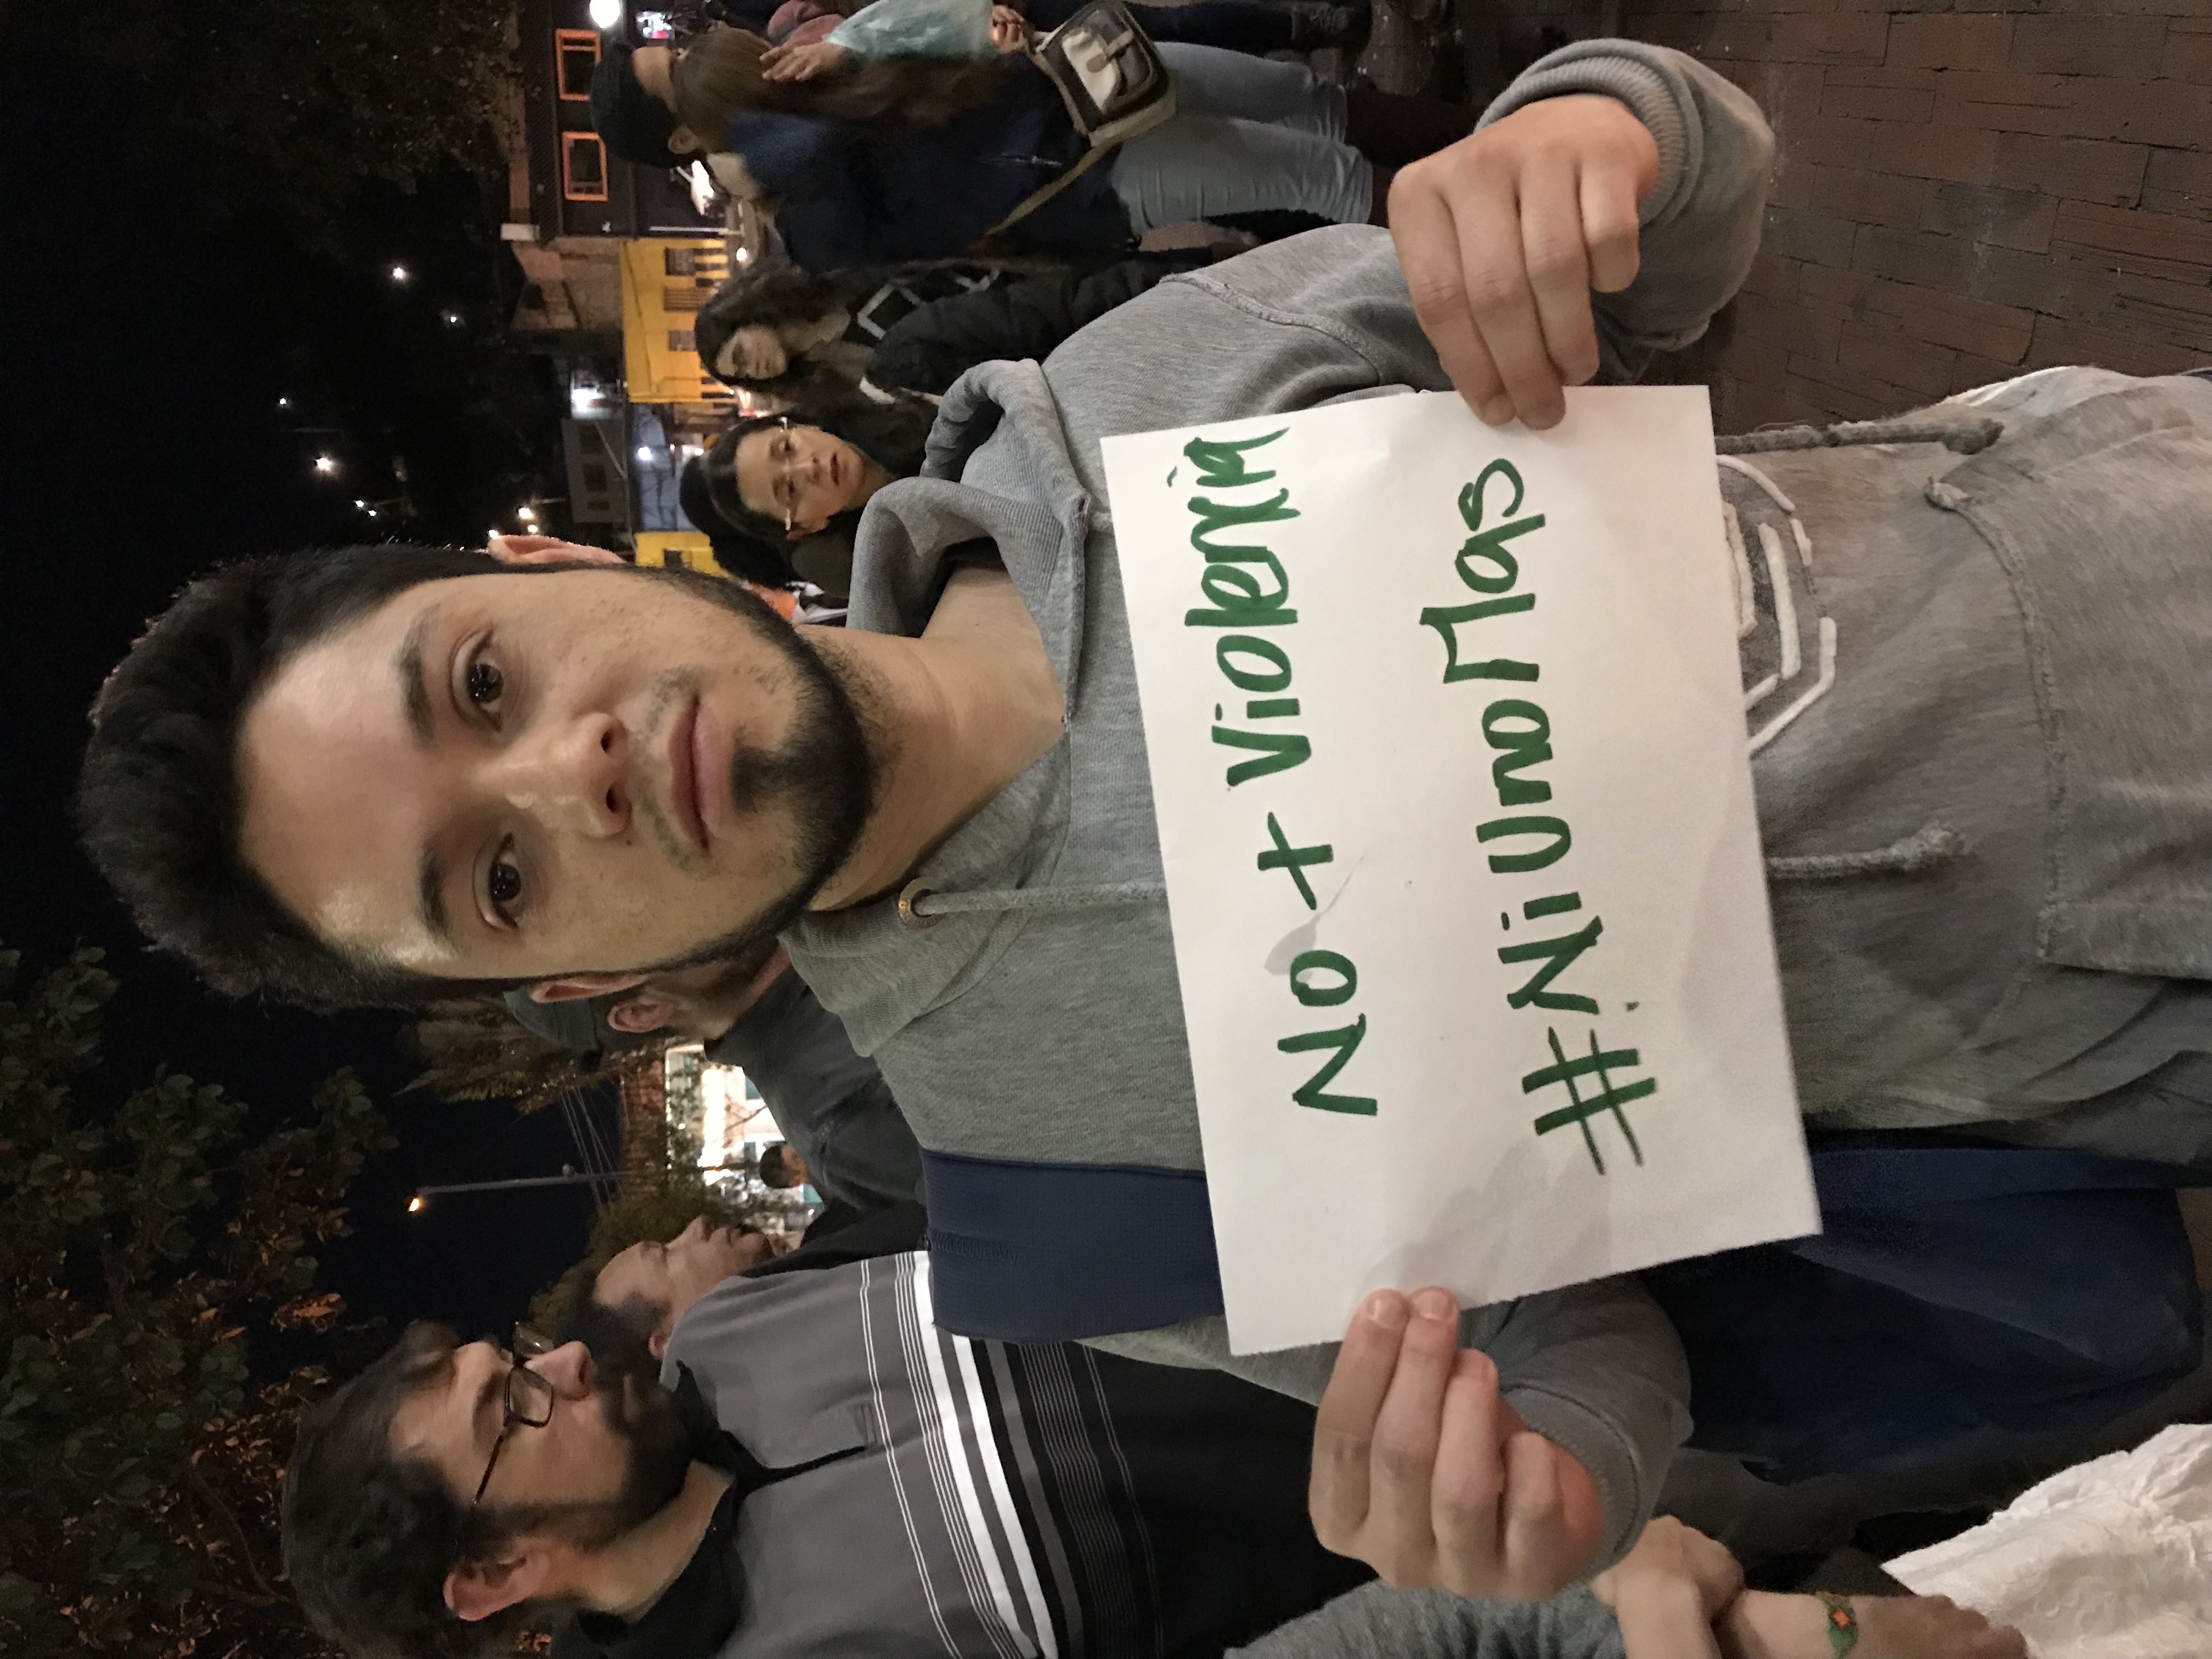 No + Violencia
#NiUnoMas